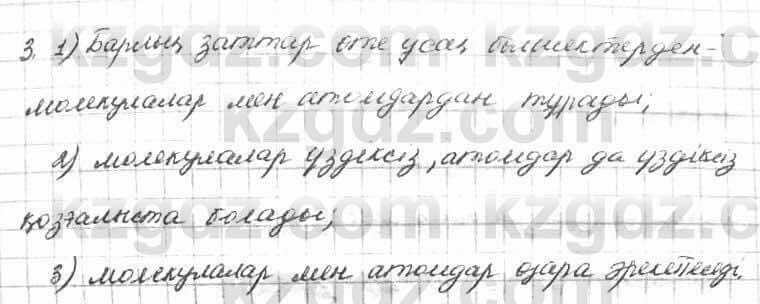 3. 1) Барлық заттар өте ұсақ бөлшектерден-
молекулалар мен атомдардан тұрады;
2) молекулалар үздіксіз, атомдар да үздіксіз
қозғалыста болады;
3) молекулалар мен атомдар өзара әрекеттеседі.